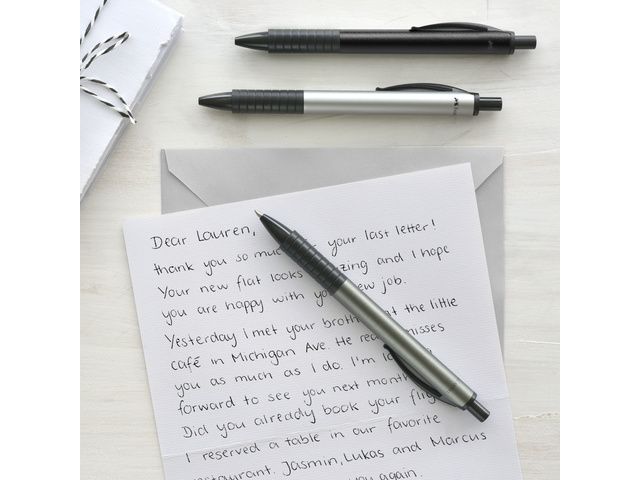 Dear Lauren,
thank you so your last letter!
Your new flat looks and I hope
you are happy with job.
Yesterday I met your at the little
café in Michigan Ave. He misses
you as much as I do. I'm
forward to see you next
Did you already book your
I reserved a table in our favorite
Jasmin, Lukas and Marcus
you again.